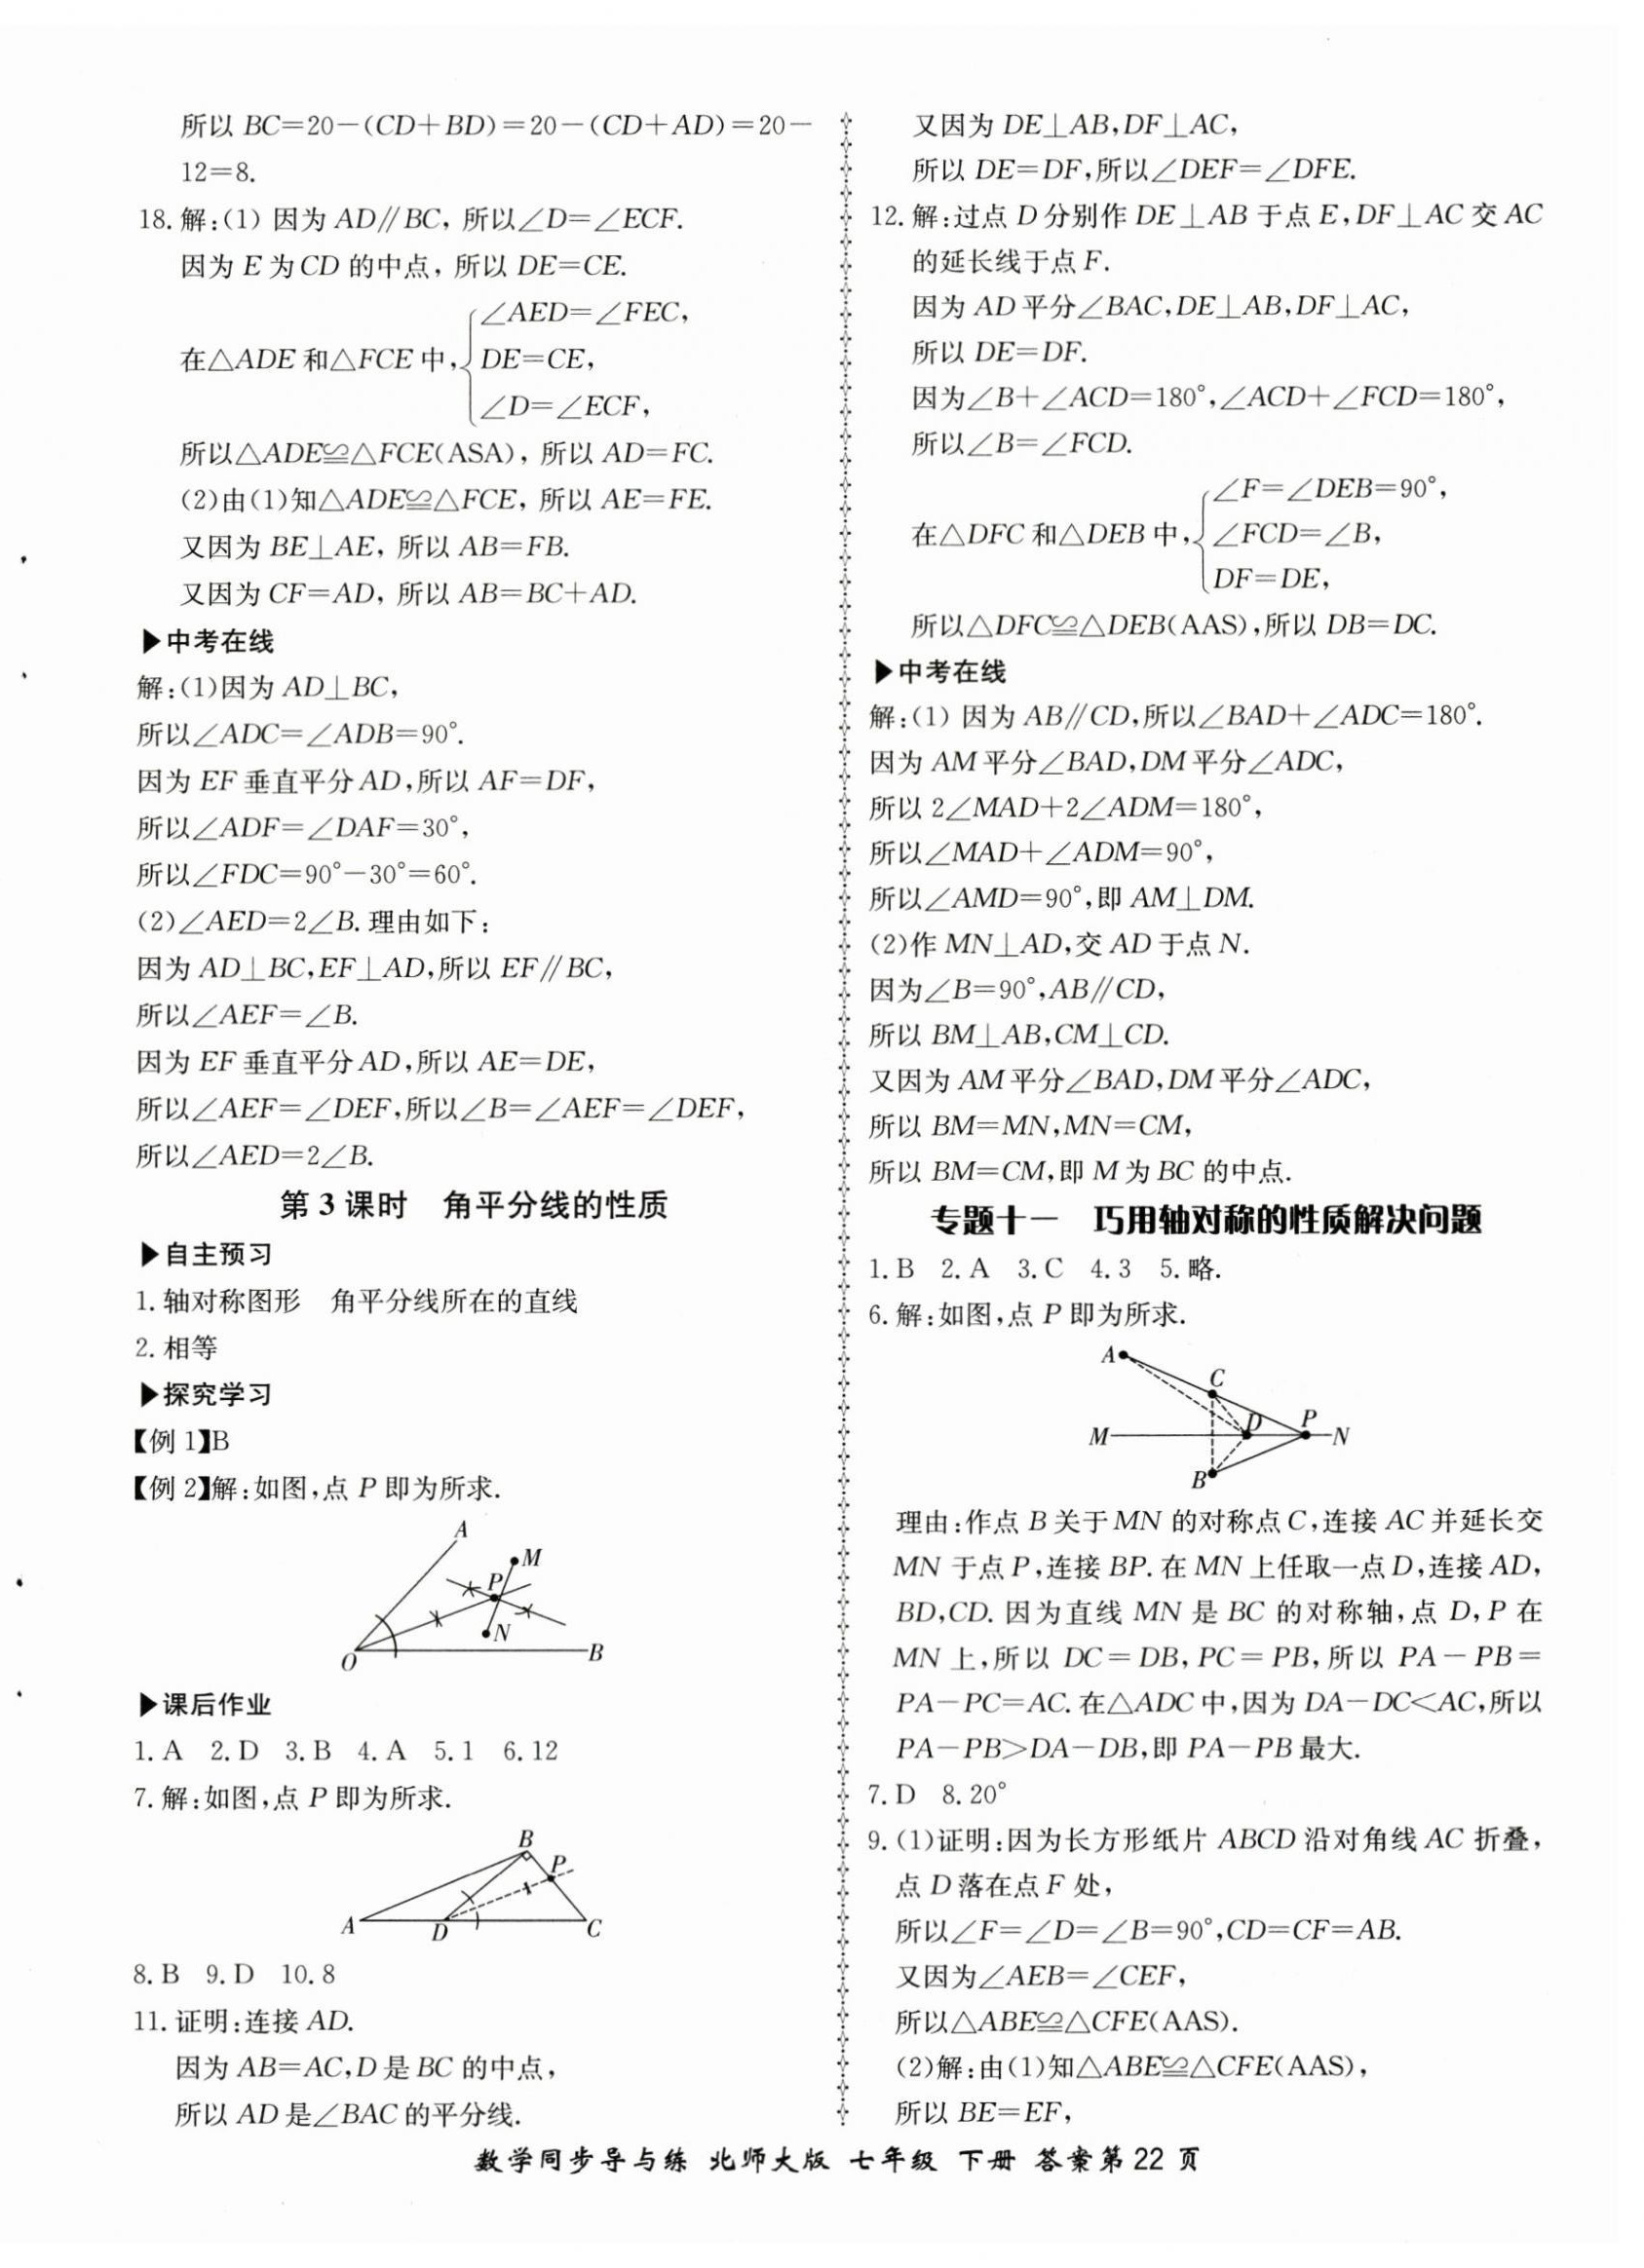 所以 BC=20-(CD+BD)=20-(CD+AD)=20-
12=8.
18. 解:(1) 因为 AD∥BC, 所以∠D=∠ECF.
因为 E 为 CD 的中点, 所以 DE=CE.
∠AED=∠FEC,
在△ADE 和△FCE 中,{DE=CE,
∠D=∠ECF,
所以△ADE≌△FCE(ASA), 所以 AD=FC.
(2)由(1)知△ADE≌△FCE, 所以 AE=FE.
又因为 BE⊥AE, 所以 AB=FB.
又因为 CF=AD, 所以 AB=BC+AD.
▶中考在线
解:(1)因为 AD⊥BC,
所以∠ADC=∠ADB=90°.
因为 EF 垂直平分 AD,所以 AF=DF,
所以∠ADF=∠DAF=30°,
所以∠FDC=90°-30°=60°.
(2)∠AED=2∠B. 理由如下:
因为 AD⊥BC,EF⊥AD,所以 EF∥BC,
所以∠AEF=∠B.
因为 EF 垂直平分 AD,所以 AE=DE,
所以∠AEF=∠DEF,所以∠B=∠AEF=∠DEF,
所以∠AED=2∠B.
第 3 课时 角平分线的性质
▶自主预习
1. 轴对称图形 角平分线所在的直线
2. 相等
▶探究学习
【例 1】B
【例 2】解:如图,点 P 即为所求.
A
M
P
N
O
B
▶课后作业
1. A 2. D 3. B 4. A 5. 1 6. 12
7. 解:如图,点 P 即为所求.
B
P
A
D
C
8. B 9. D 10. 8
11. 证明:连接 AD.
因为 AB=AC,D 是 BC 的中点,
所以 AD 是∠BAC 的平分线.
又因为 DE⊥AB,DF⊥AC,
所以 DE=DF,所以∠DEF=∠DFE.
12. 解:过点 D 分别作 DE⊥AB 于点 E,DF⊥AC 交 AC
的延长线于点 F.
因为 AD 平分∠BAC,DE⊥AB,DF⊥AC,
所以 DE=DF.
因为∠B+∠ACD=180°,∠ACD+∠FCD=180°,
所以∠B=∠FCD.
∠F=∠DEB=90°,
在△DFC 和△DEB 中,{∠FCD=∠B,
DF=DE,
所以△DFC≌△DEB(AAS),所以 DB=DC.
▶中考在线
解:(1) 因为 AB∥CD,所以∠BAD+∠ADC=180°.
因为 AM 平分∠BAD,DM 平分∠ADC,
所以 2∠MAD+2∠ADM=180°,
所以∠MAD+∠ADM=90°,
所以∠AMD=90°,即 AM⊥DM.
(2)作 MN⊥AD,交 AD 于点 N.
因为∠B=90°,AB∥CD,
所以 BM⊥AB,CM⊥CD.
又因为 AM 平分∠BAD,DM 平分∠ADC,
所以 BM=MN,MN=CM,
所以 BM=CM,即 M 为 BC 的中点.
专题十一 巧用轴对称的性质解决问题
1. B 2. A 3. C 4. 3 5. 略.
6. 解:如图,点 P 即为所求.
A
C
D
P
M
N
B
理由:作点 B 关于 MN 的对称点 C,连接 AC 并延长交
MN 于点 P,连接 BP. 在 MN 上任取一点 D,连接 AD,
BD,CD. 因为直线 MN 是 BC 的对称轴,点 D,P 在
MN 上,所以 DC=DB,PC=PB,所以 PA-PB=
PA-PC=AC. 在△ADC 中,因为 DA-DC<AC,所以
PA-PB>DA-DB,即 PA-PB 最大.
7. D 8. 20°
9. (1)证明:因为长方形纸片 ABCD 沿对角线 AC 折叠,
点 D 落在点 F 处,
所以∠F=∠D=∠B=90°,CD=CF=AB.
又因为∠AEB=∠CEF,
所以△ABE≌△CFE(AAS).
(2)解:由(1)知△ABE≌△CFE(AAS),
所以 BE=EF,
数学同步导与练 北师大版 七年级 下册 答案第 22 页